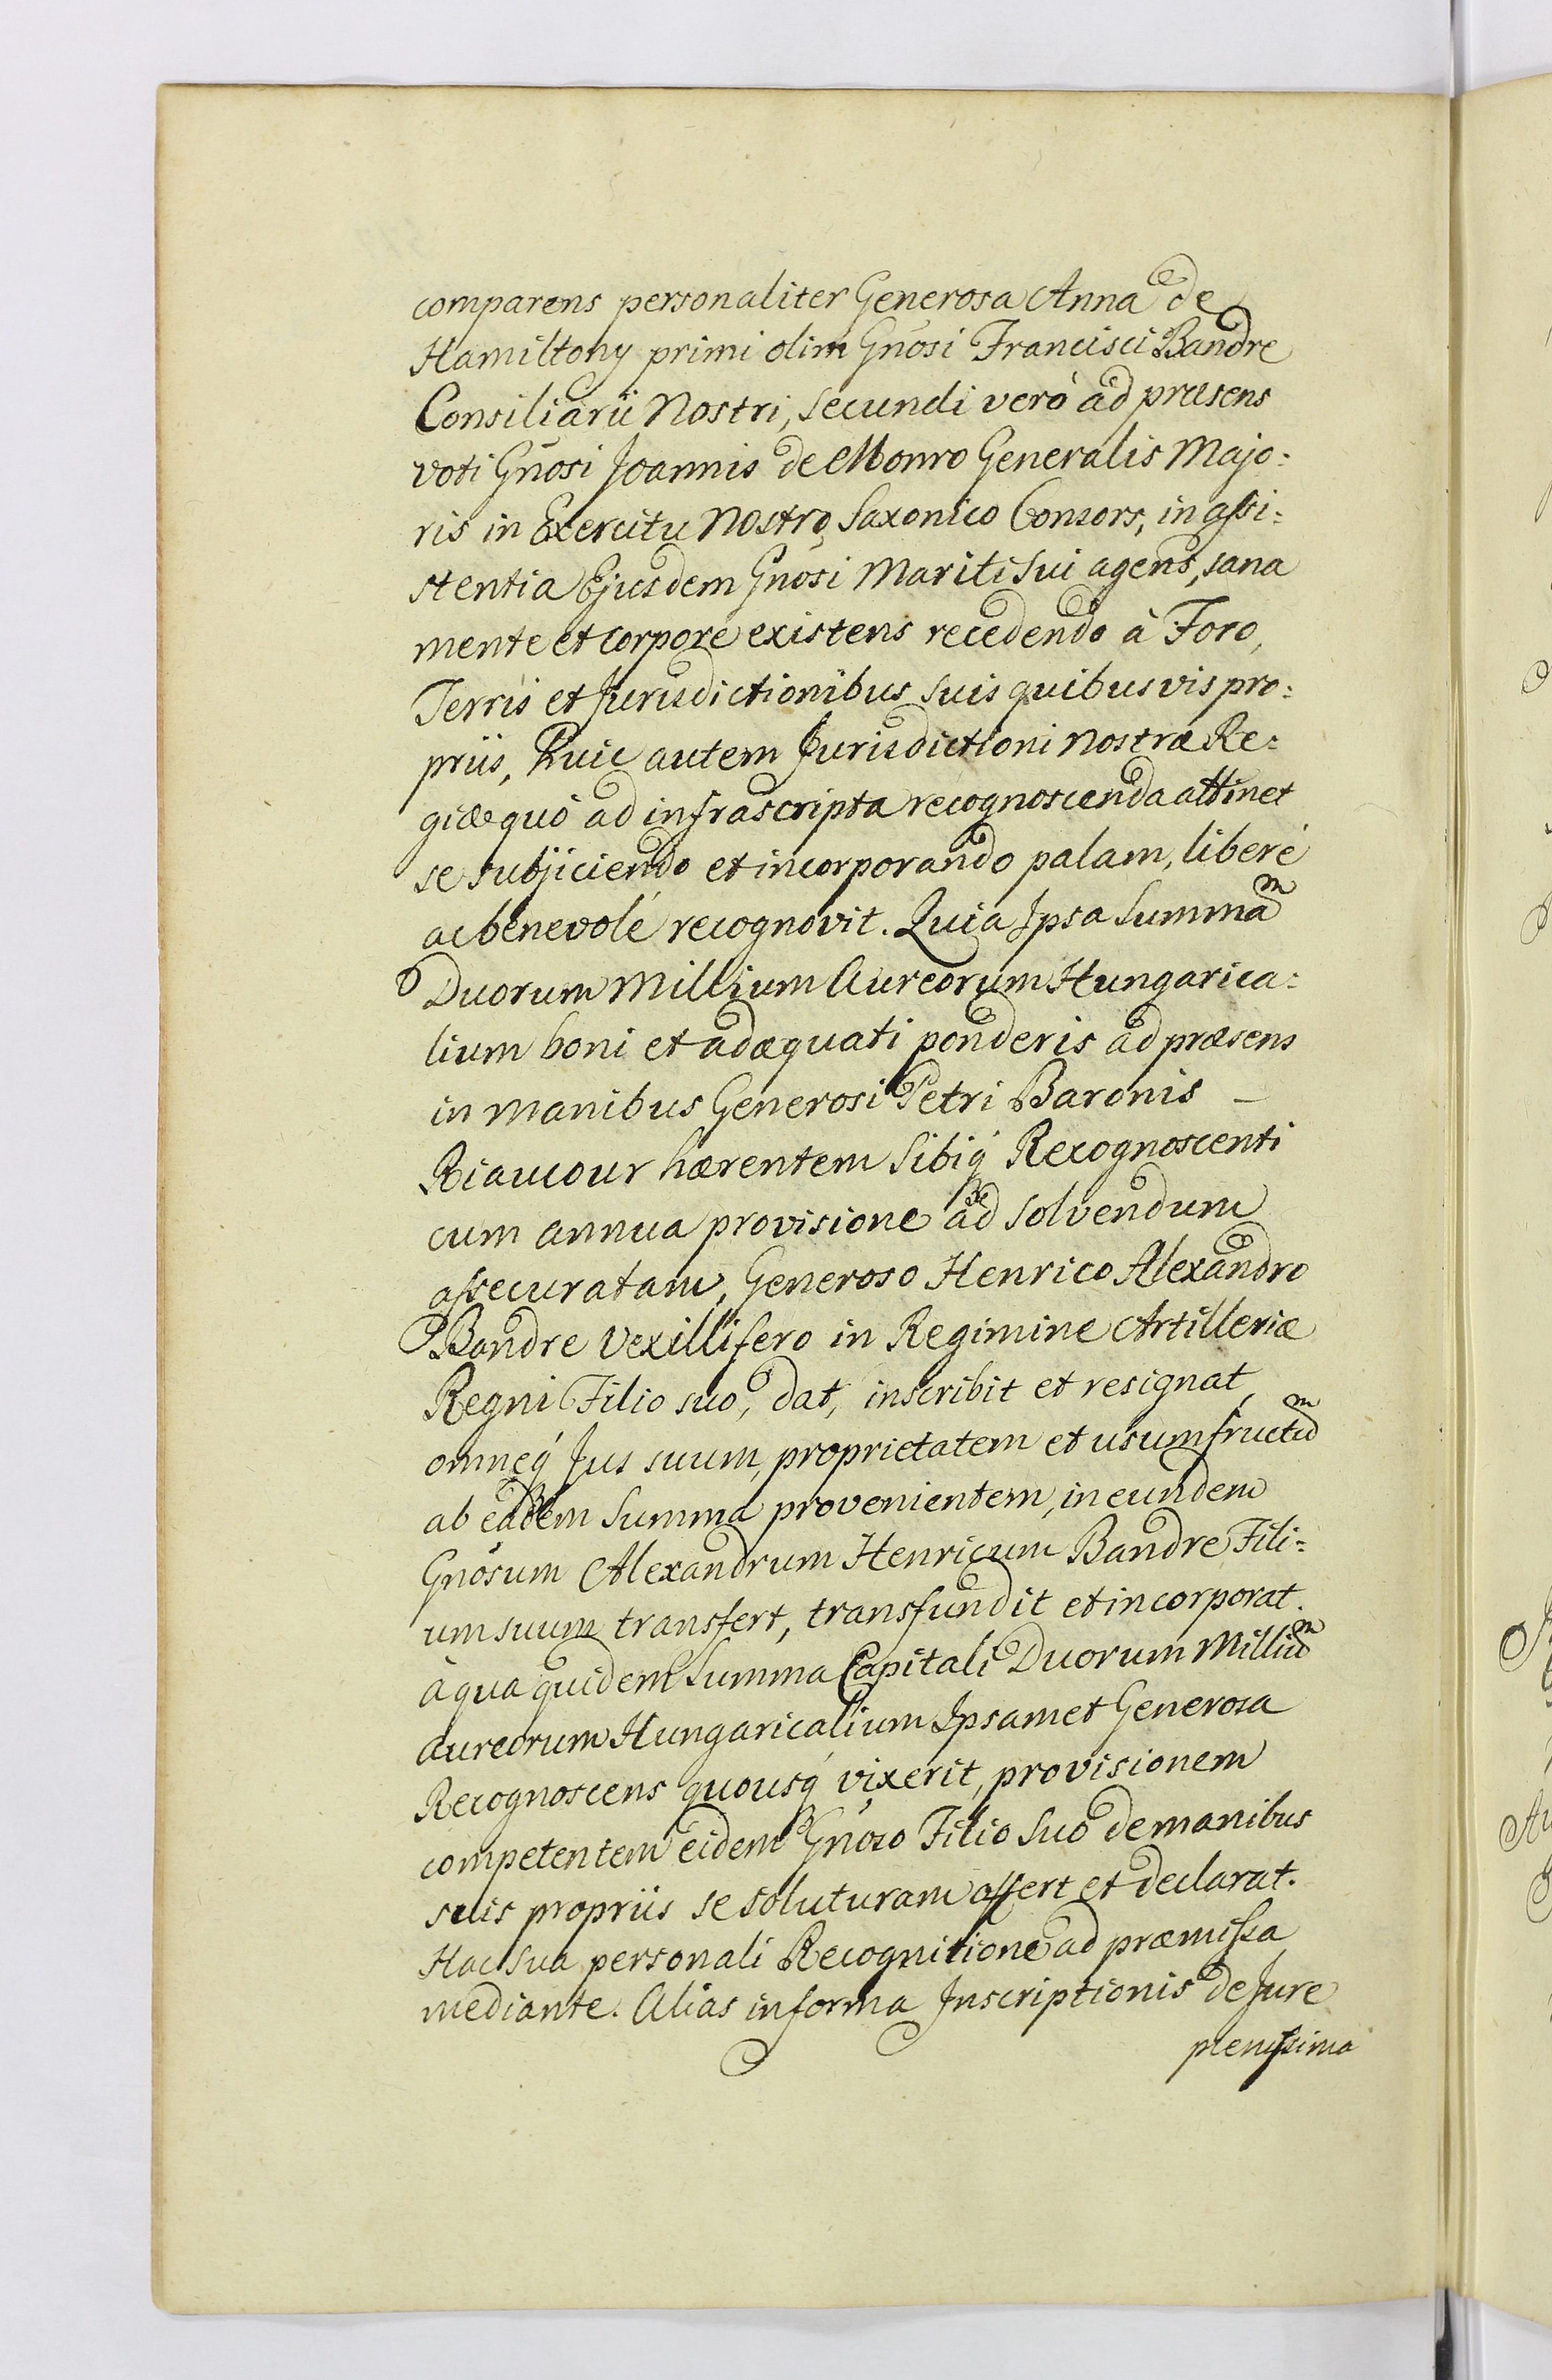 comparens personaliter Generosa Anna de
Hamiltony primi olim Gnõsi Francisci Bandre
Consiliarii Nostri, secundi verò ad præsens
voti Gnõsi Joannis de Monro Generalis Majo:
ris in Exercitu Nostro Saxonico Consors, in assi:
stentia Ejusdem Gnõsi Mariti Sui agens, sana
mente et corpore existens recedendo à Foro,
Terris et Jurisdictionibus suis quibusvis pro:
priis, huic autem Jurisdictioni Nostræ Re:
giæ quò ad infrascripta recognoscenda attinet
se subjiciendo et incorporando palam, liberé
ac benevolé recognovit. Quia Ipsa Summam
Duorum Millium Aureorum Hungarica:
lium boni et adæquati ponderis ad præsens
in manibus Generosi Petri Baronis –
Riaucour hærentem Sibiq́ Recognoscenti
cum annua provisione ad solvendum
assecuratam, Generoso Henrico Alexandro
Bandre Vexillifero in Regimine Artilleriæ
Regni Filio suo, dat, inscribit et resignat,
omneq́ Jus suum, proprietatem et usumfructum
ab eadem Summa provenientem, in eundem
Gnõsum Alexandrum Henricum Bandre Fili:
um suum transfert, transfundit et incorporat.
à qua quidem Summa Capitali Duorum Millium
aureorum Hungaricalium Ipsamet Generosa
Recognoscens quousq́ vixerit, provisionem
competentem eidem Gnõso Filio Suo de manibus
suis propriis se soluturam offert et declarat.
Hac sua personali Recognitione ad præmissa
mediante. Alias in forma Inscriptionis de Jure
plenissima